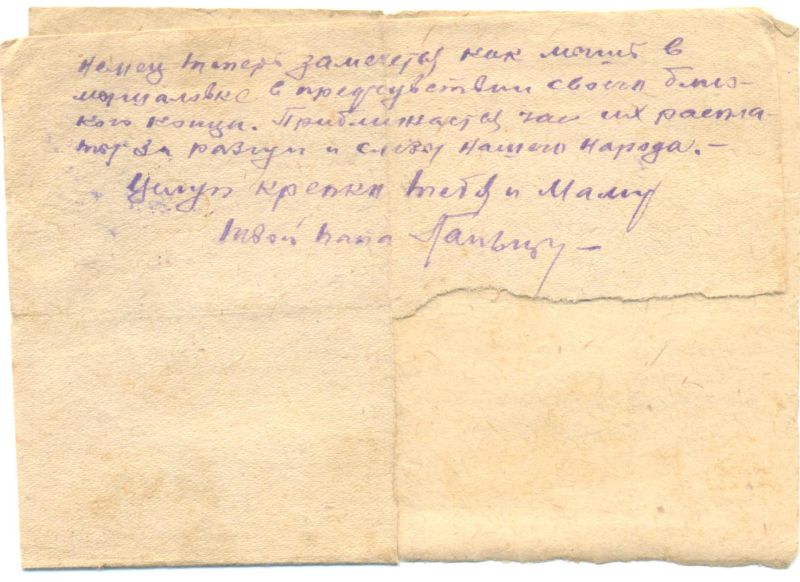 немец теперь замечется как мышь в
мышаловке в предчувствии своего близ-
кого конца. Приближается час их распла-
ты за разгул и слёзы нашего народа. –
Целую крепко тебя и Маму
твой папа